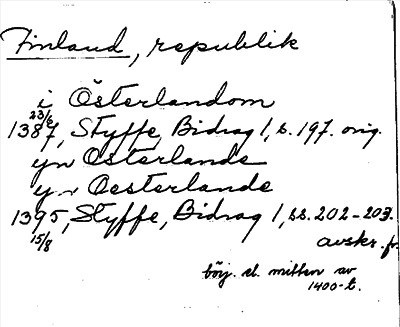 Finland, republik
i Österlandom
23/8
1387, Styffe, Bidrag 1, s. 197. orig.
yn Österlande
y Oesterlande
1395, Styffe, Bidrag 1, ss. 202-203.
15/8
avskr. fr.
börj. el. mitten av
1400-t.